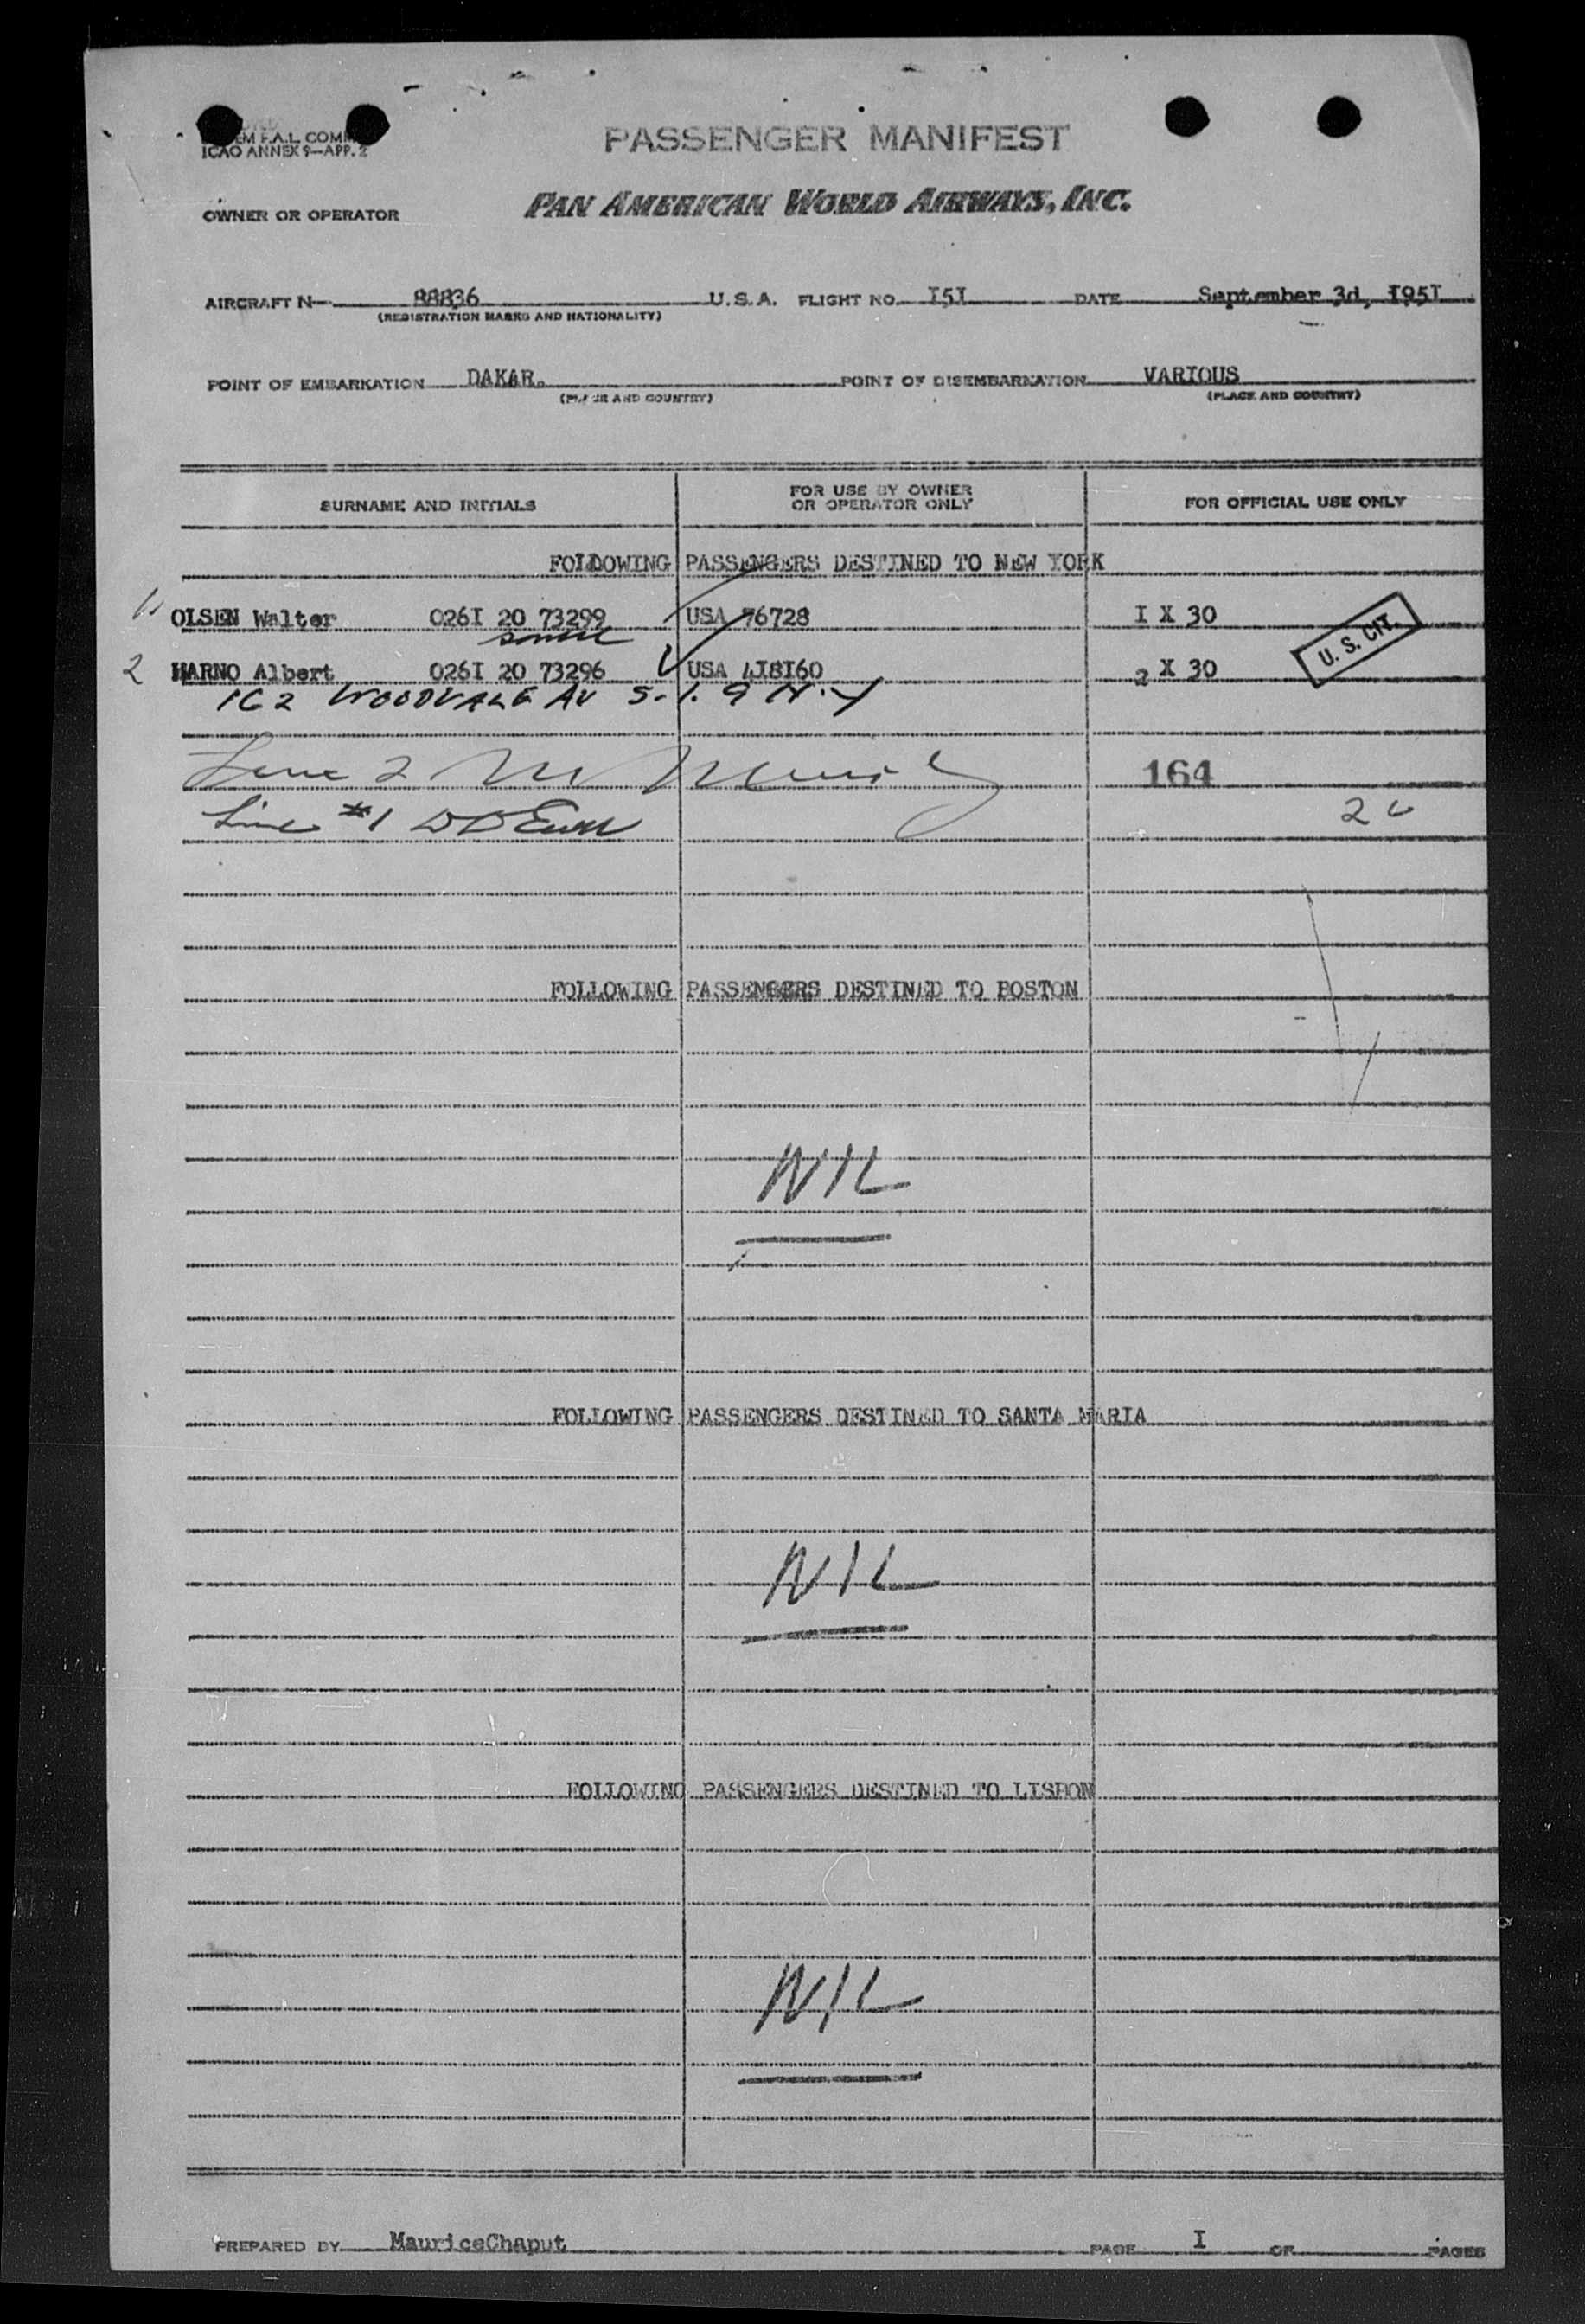 EM F.A.L. COM
ICAO ANNEX 9—APP. 2
PASSENGER MANIFEST
OWNER OR OPERATOR PAN AMERICAN WORLD AIRWAYS, INC.
AIRCRAFT N— 88836 U.S.A. FLIGHT NO. I5I DATE September 3d, I95I
(REGISTRATION MARKS AND NATIONALITY)
POINT OF EMBARKATION DAKAR. POINT OF DISEMBARKATION VARIOUS
(PLACE AND COUNTRY) (PLACE AND COUNTRY)
SURNAME AND INITIALS FOR USE BY OWNER OR OPERATOR ONLY FOR OFFICIAL USE ONLY
FOLLOWING PASSENGERS DESTINED TO NEW YORK
1. OLSEN Walter 026I 20 73299 USA 76728 I X 30
same
U. S. CIT.
2 HARNO Albert 026I 20 73296 USA 4I8I60 2 X 30
162 WOODVALE AV S.I. 9 N.Y
Line 2 164
Line #1 2
FOLLOWING PASSENGERS DESTINED TO BOSTON
NIL
FOLLOWING PASSENGERS DESTINED TO SANTA MARIA
NIL
FOLLOWING PASSENGERS DESTINED TO LISBON
NIL
PREPARED BY MauriceChaput PAGE I OF PAGES